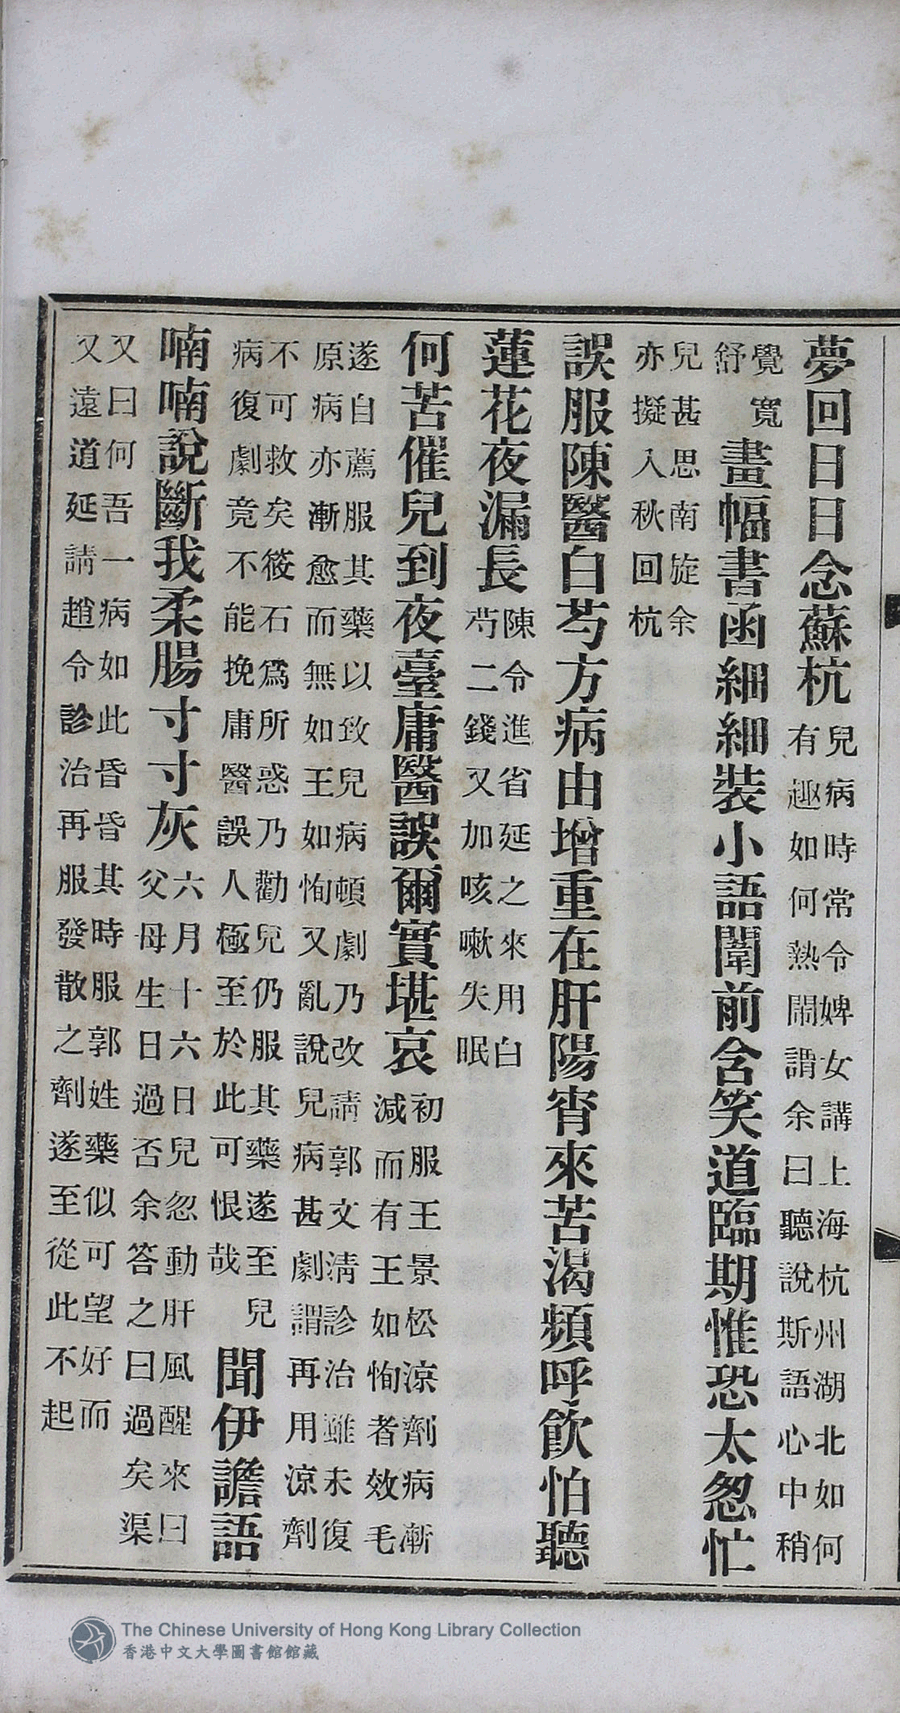 夢回日日念蘇杭
兒病時常令婢女講上海杭州湖北如何
有趣如何熱鬧謂余曰聽說斯語心中稍
覺寬
舒
畫幅書函細細裝小語闈前含笑道臨期惟恐太怱忙
兒甚思南旋余
亦擬入秋回杭
誤服陳醫白芍方病由增重在肝陽宵來苦渴頻呼飲怕聽
蓮花夜漏長
陳令進省延之來用白
芍二錢又加咳嗽失眠
何苦催兒到夜臺庸醫誤爾實堪哀
初服王景松涼劑病漸
減而有王如恂者效毛
遂自薦服其藥以致兒病頓劇乃改請郭文清診治雖未復
原病亦漸愈而無如王如恂又亂說兒病甚劇謂再用涼劑
不可救矣筱石爲所惑乃勸兒仍服其藥遂至兒
病復劇竟不能挽庸醫誤人極至於此可恨哉
聞伊譫語
喃喃說斷我柔腸寸寸灰
六月十六日兒忽動肝風醒來曰
父母生日過否余答之曰過矣渠
又曰何吾一病如此昏昏其時服郭姓藥似可望好而
又遠道延請趙令診治再服發散之劑遂至從此不起
The Chinese University of Hong Kong Library Collection
香港中文大學圖書館館藏